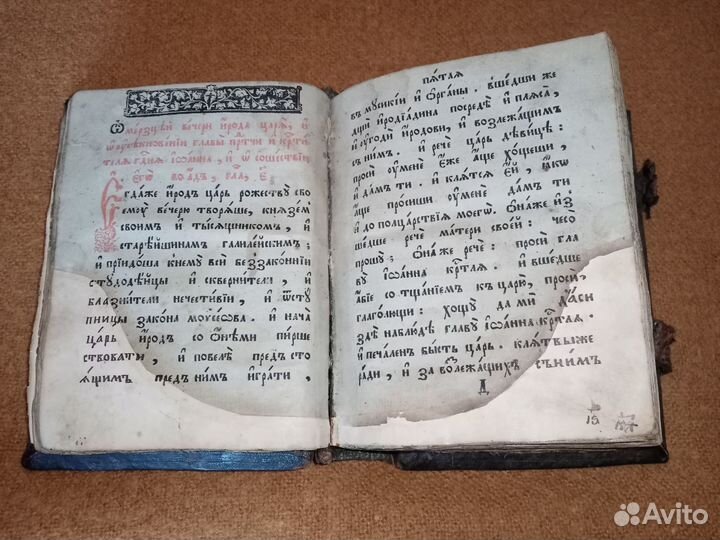 Ѡ мерзцей вечери ирода царѧ, и
ѡ оусекновенїи главы пр҃тчи и кр҃ти
телѧ гд҃нѧ їѡанна, и ѡ сошествїи
егѡ во адъ, гла, е҃
Егдаже иродъ царь рожествꙋ сво
емꙋ вечерю творѧше, кнѧземъ
своимъ и тысѧщникомъ, и
старейшинамъ галилейскимъ:
и прїидоша къ немꙋ вси беззаконнїи
стꙋдодейцы и сквернители, и
блазнители нечестивїи, и ѿстꙋ
пницы закона моѵсеова. и нача
царь иродъ со онеми пирше
ствовати, и повеле предъ сто
ѧщимъ предъ нимъ играти,
пѧтаѧ
въ мꙋсикїи и органы. вшедши же
дщи иродїадина посреде и плѧса,
и оугоди иродови, и возлежащимъ
с нимъ. и рече царь девице:
проси оу мене еже аще хощеши,
и дамъ ти. и клѧтсѧ ей, ꙗкѡ
аще просиши оу мене дамъ ти
и до полцарствїѧ моегѡ. она же из
шедше рече матери своей: чесо
прошꙋ; она же рече: проси гла
вꙋ їѡанна кр҃тлѧ. и вшедше
абїе со тщанїемъ къ царю, проси
глаголющи: хощꙋ да ми даси
зде на блюде главꙋ їѡанна кр҃тлѧ.
и печаленъ бысть царь. клѧтвы же
ради, и за возлежащихъ съ нимъ
Д
15
Avito